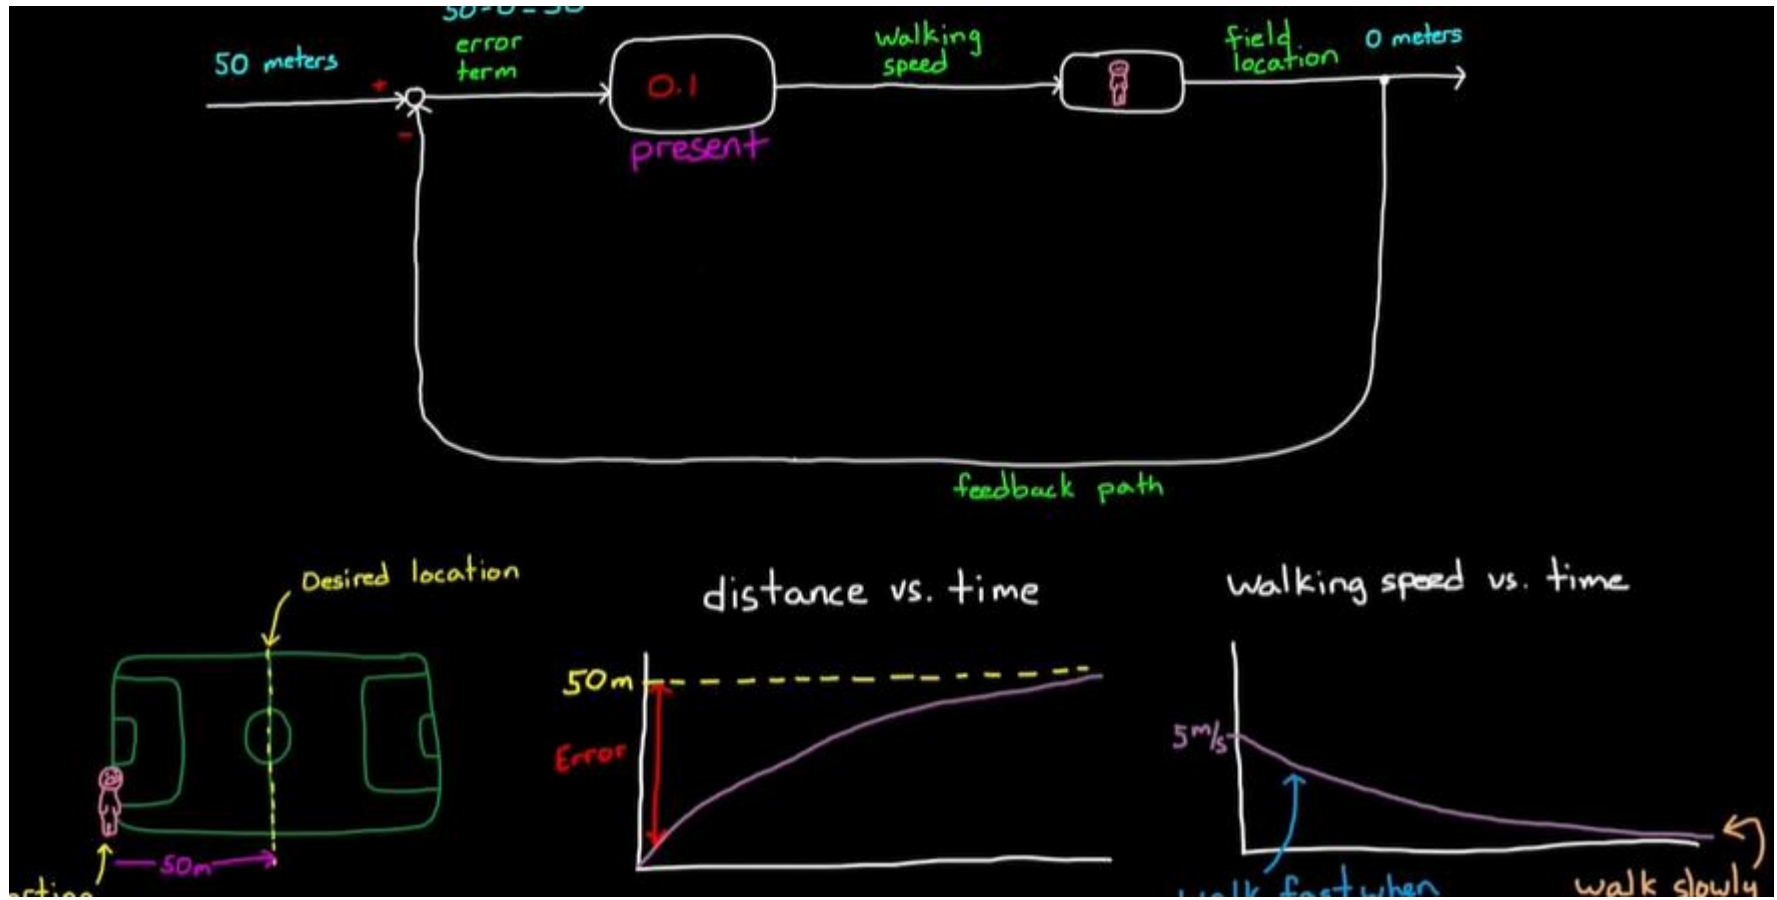 50-0=50
50 meters
error
term
+
-
0.1
present
walking
speed
field
location
0 meters
feedback path
Desired location
50m
distance vs. time
50m
Error
walking speed vs. time
5 m/s
walk fast when
walk slowly